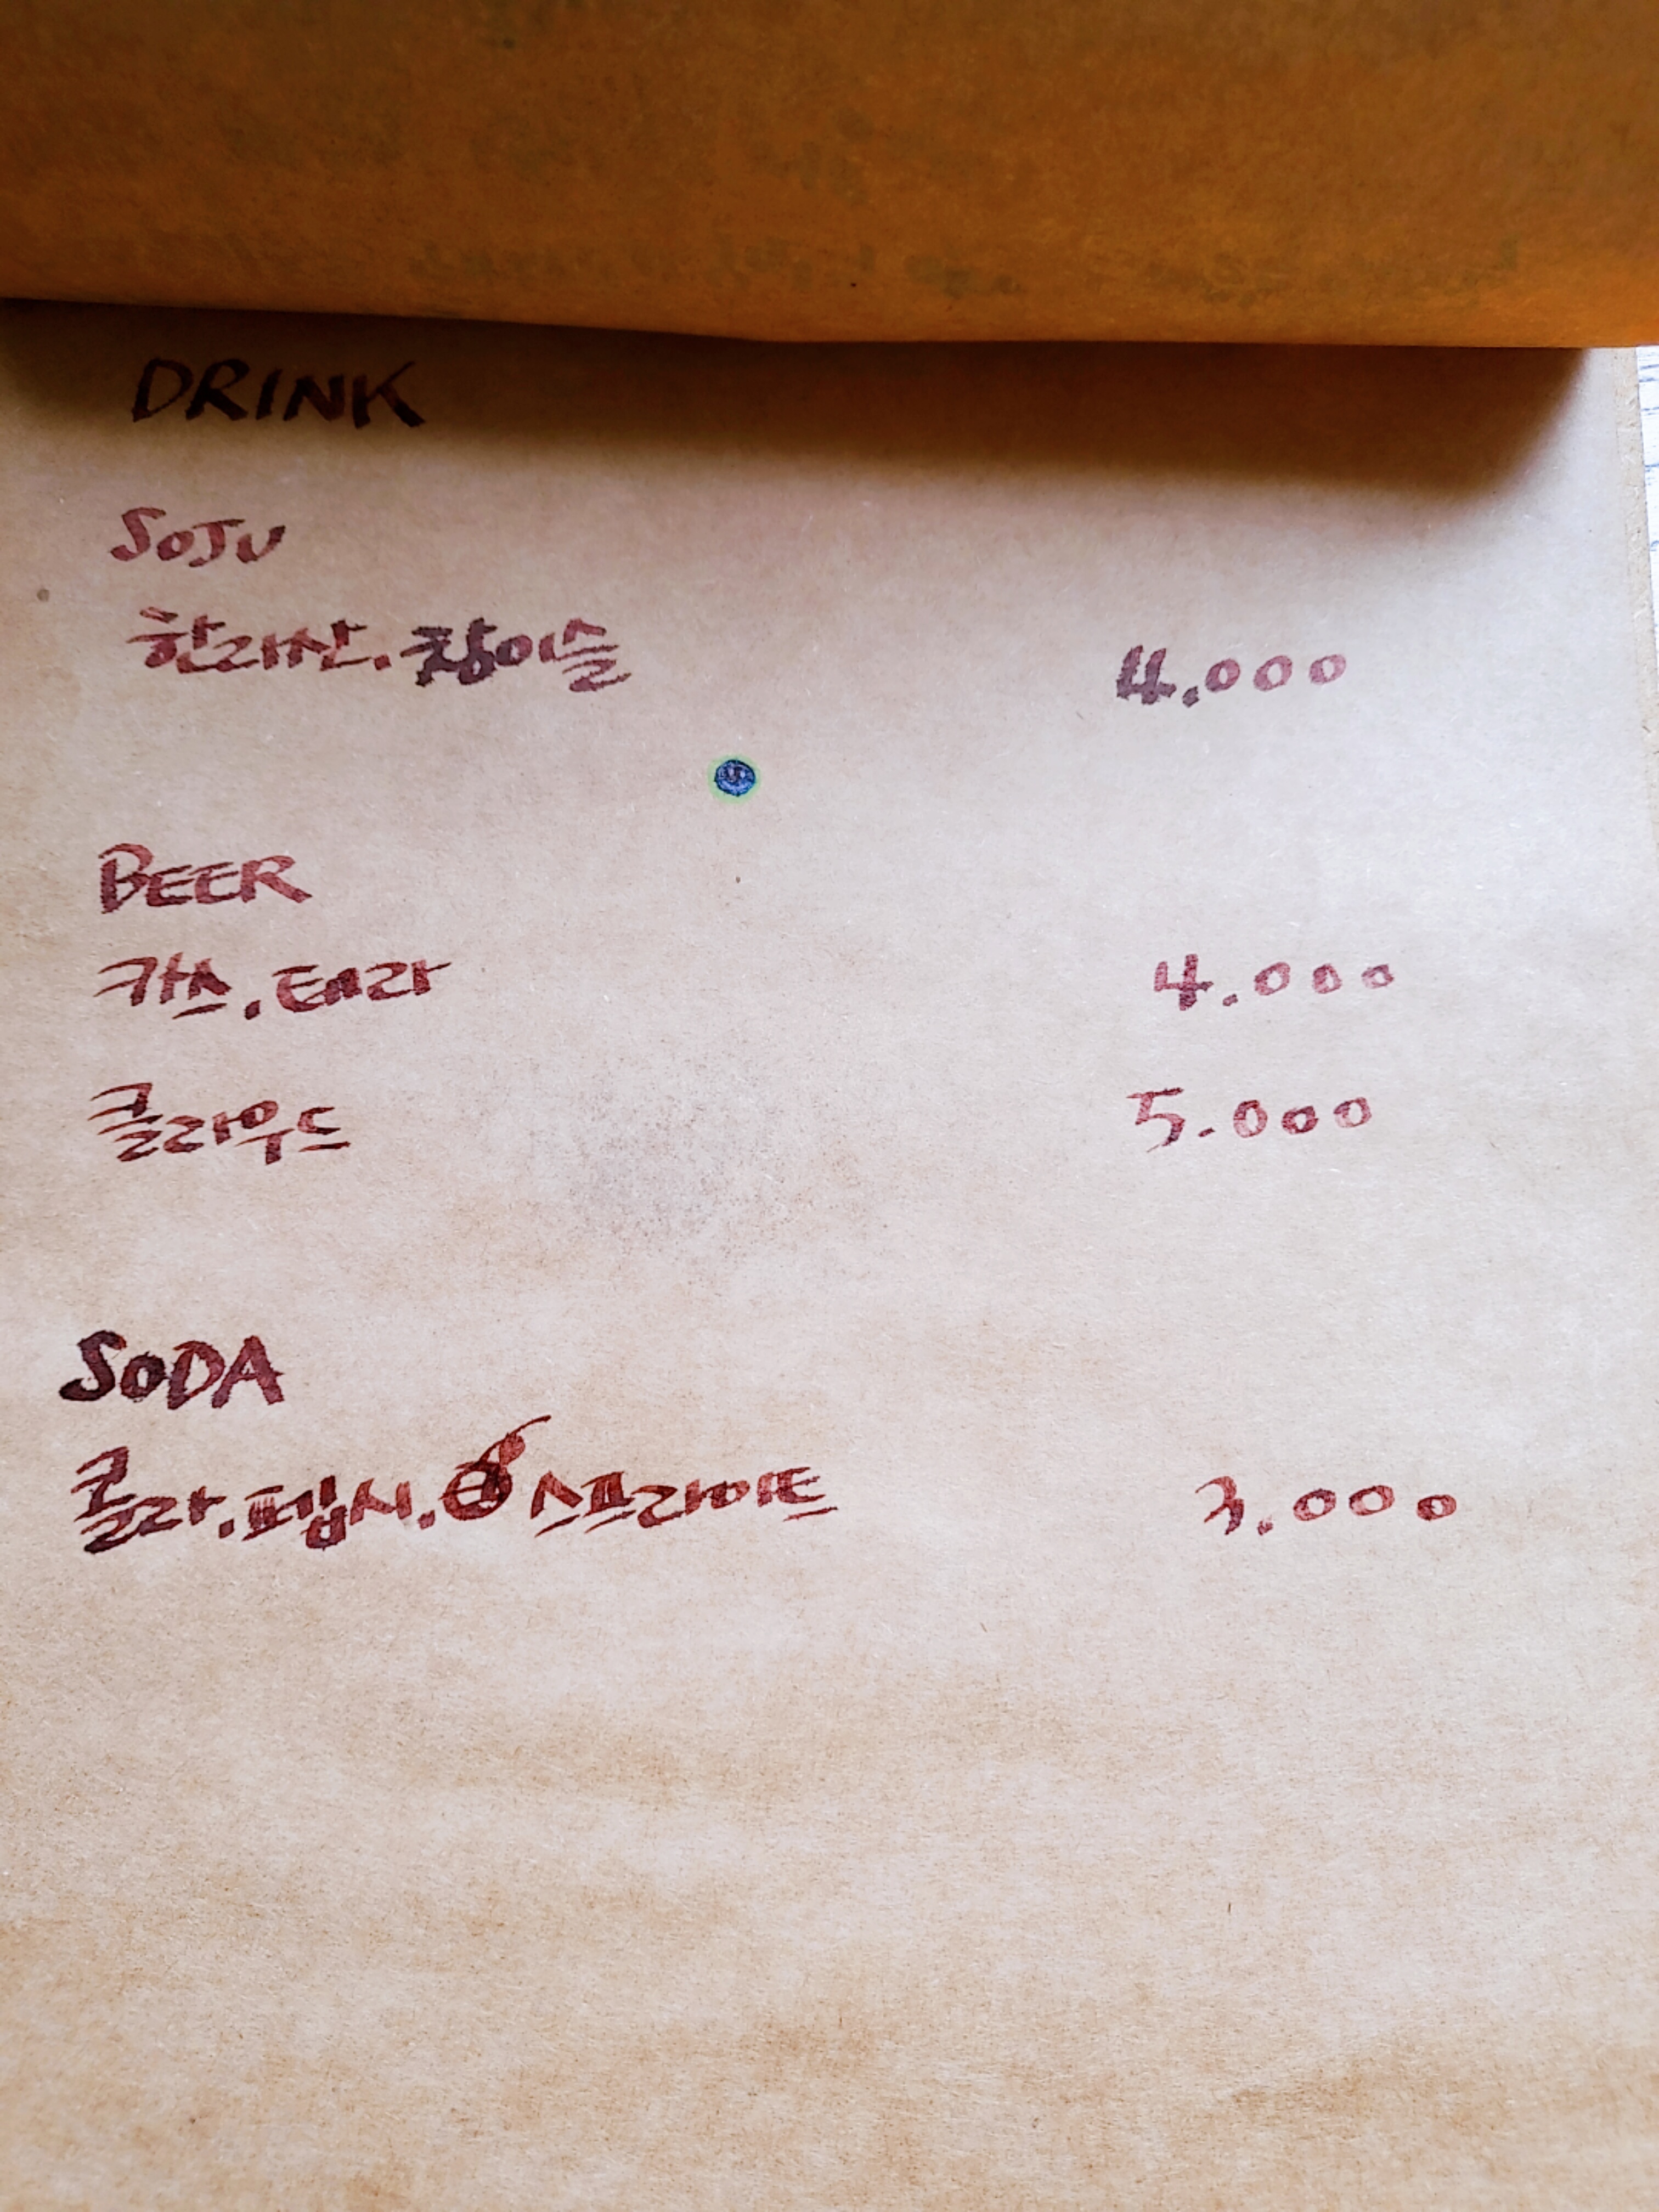 DRINK
SOJU
한라산.참이슬 4.000
BEER
카스.테라 4.000
클라우드 5.000
SODA
콜라.펩시.스프라이트 3.000